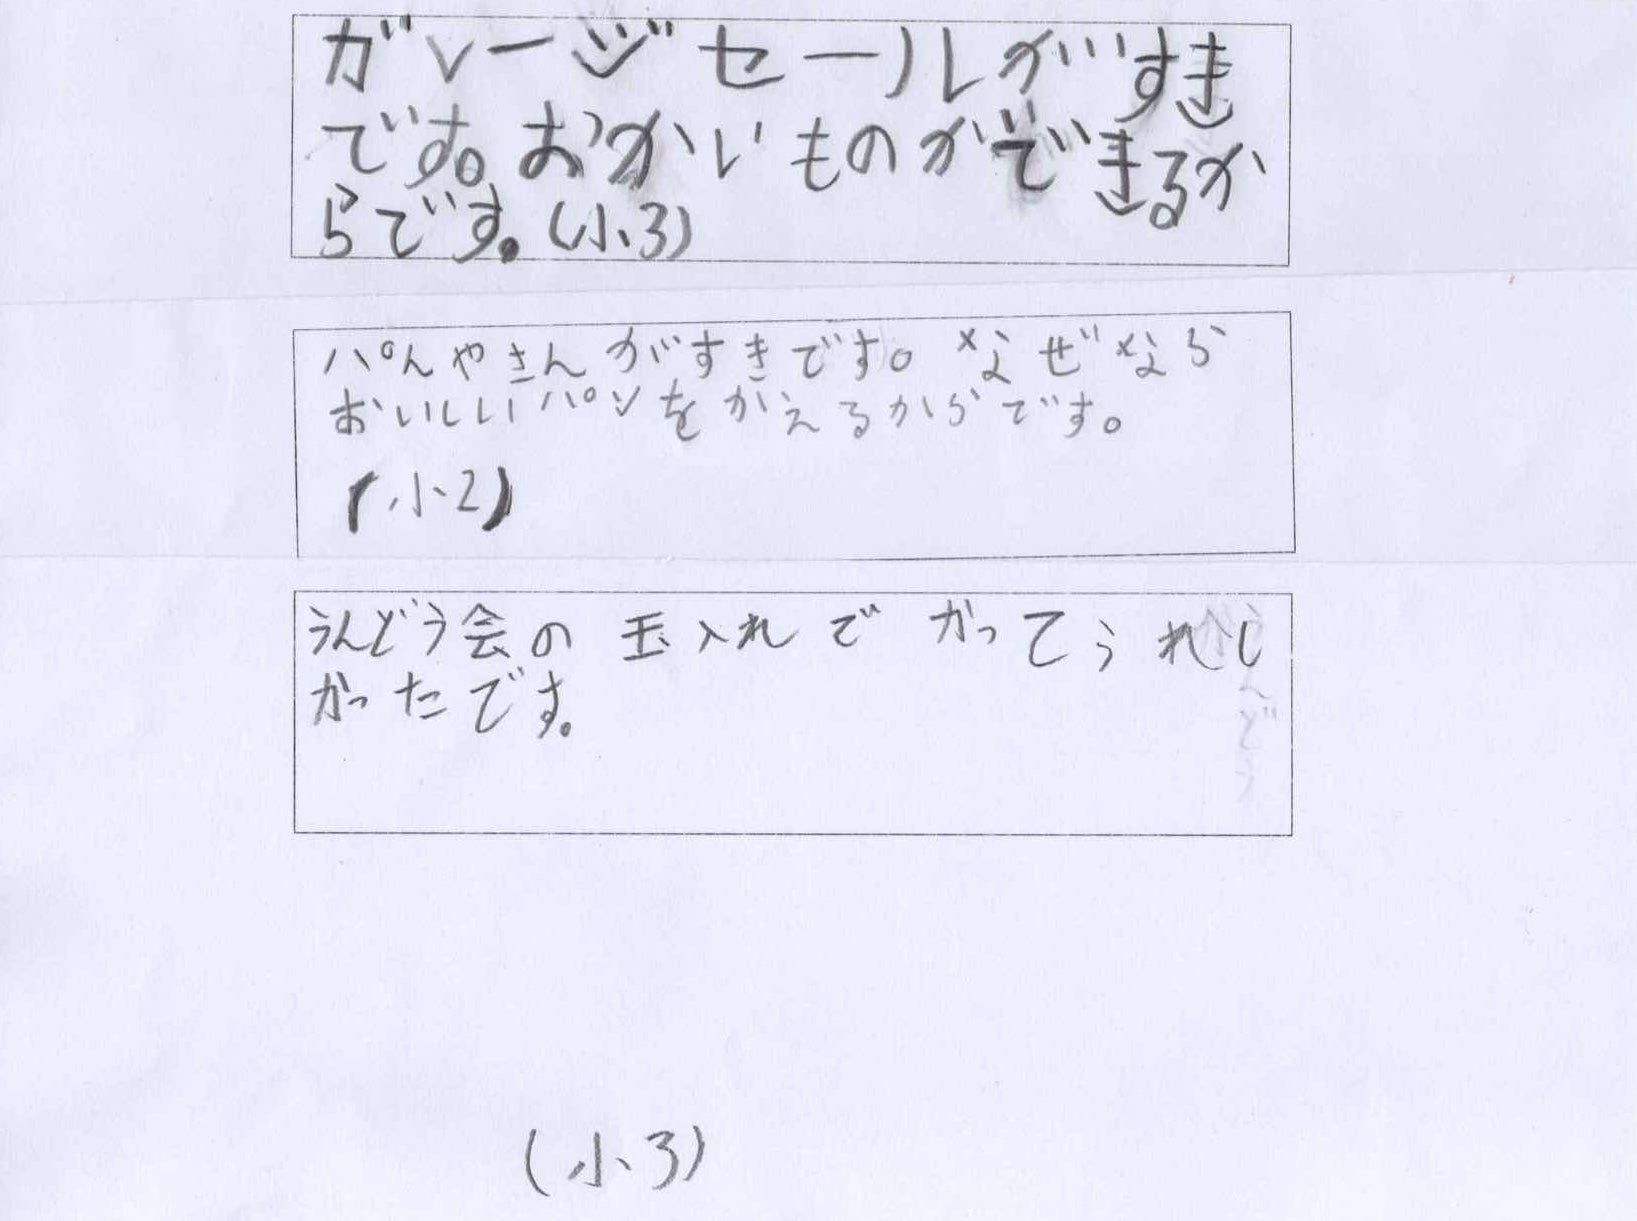 ガレージセールがすき
です。おかいものができるか
らです。(小3)
パんやさんがすきです。なぜなら
おいしいパンをかえるからです。
(小2)
うんどう会の玉入れでかってうれし
かったです。
(小3)